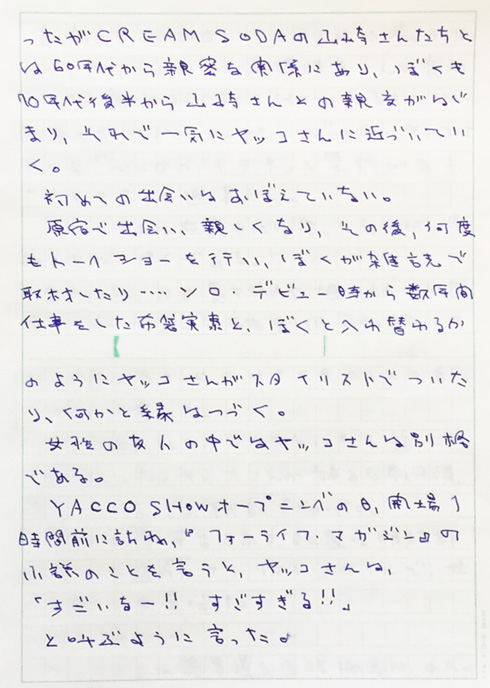 ったがCREAM SODAの山崎さんたちと
は60年代から親密な関係にあり、ぼくも
70年代後半から山崎さんとの親交がはじ
まり、それで一気にヤッコさんに近づいてい
く。
初めての出会いはおぼえていない。
原宿で出会い、親しくなり、その後、何度
もトークショーを行い、ぼくが雑誌で
取材したり……ソロ・デビュー時から数年間
仕事をした布袋寅泰と、ぼくと入れ替わるか
のようにヤッコさんがスタイリストでついた
り、何かと縁はつづく。
女性の友人の中ではヤッコさんは別格
である。
YACCO SHOWオープニングの日、開場1
時間前に訪ね、『フォーライフ・マガジン』の
小説のことを言うと、ヤッコさんは、
「すごいなー!! すごすぎる!!」
と叫ぶように言った。